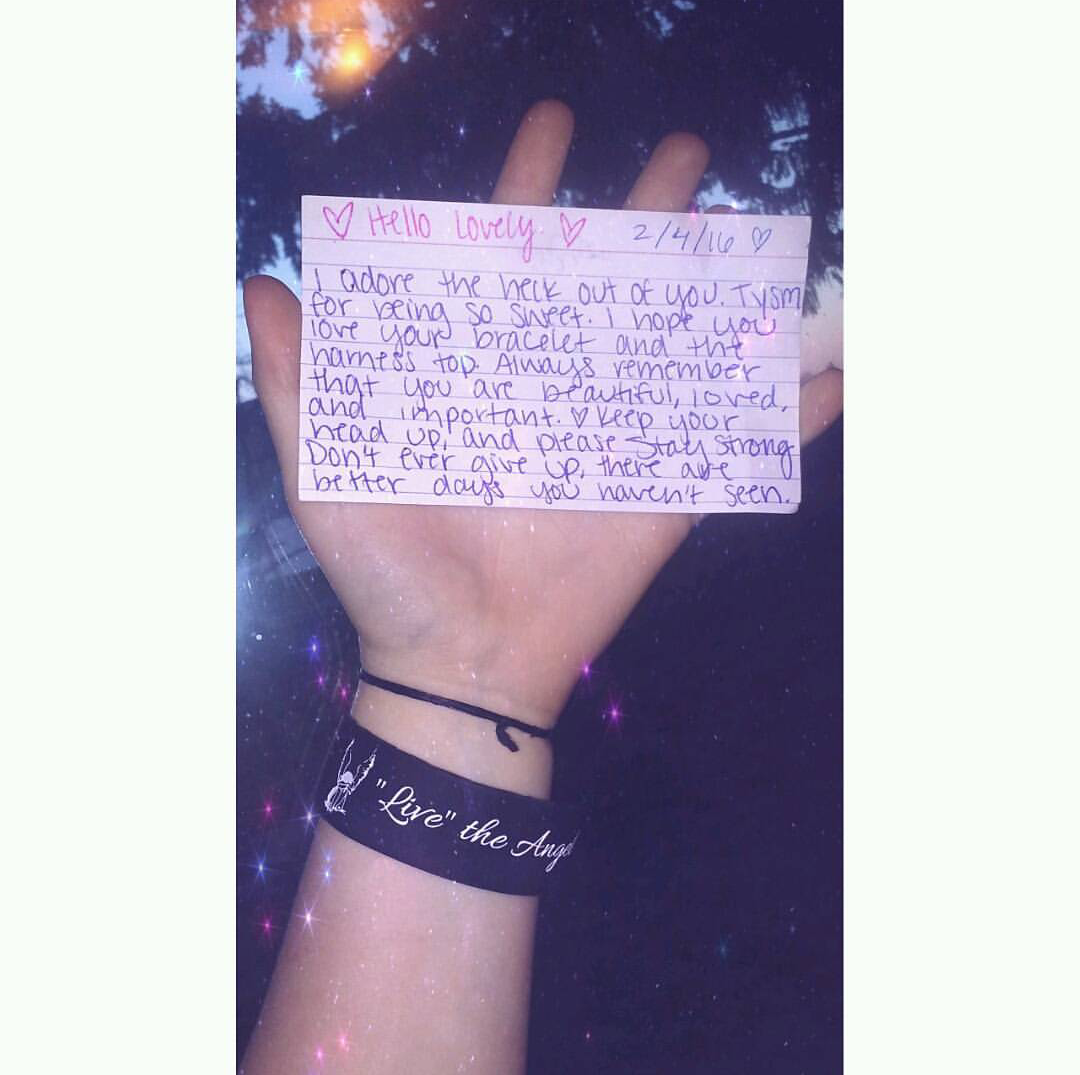 ♡ Hello Lovely ♡ 2/4/16 ♡
I adore the heck out of you. Tysm
for being so sweet. I hope you
love your bracelet and the
harness top. Always remember
that you are beautiful, loved,
and important. ♡ Keep your
head up, and please stay strong
Don't ever give up, there are
better days you haven't seen.
"Live" the Angel